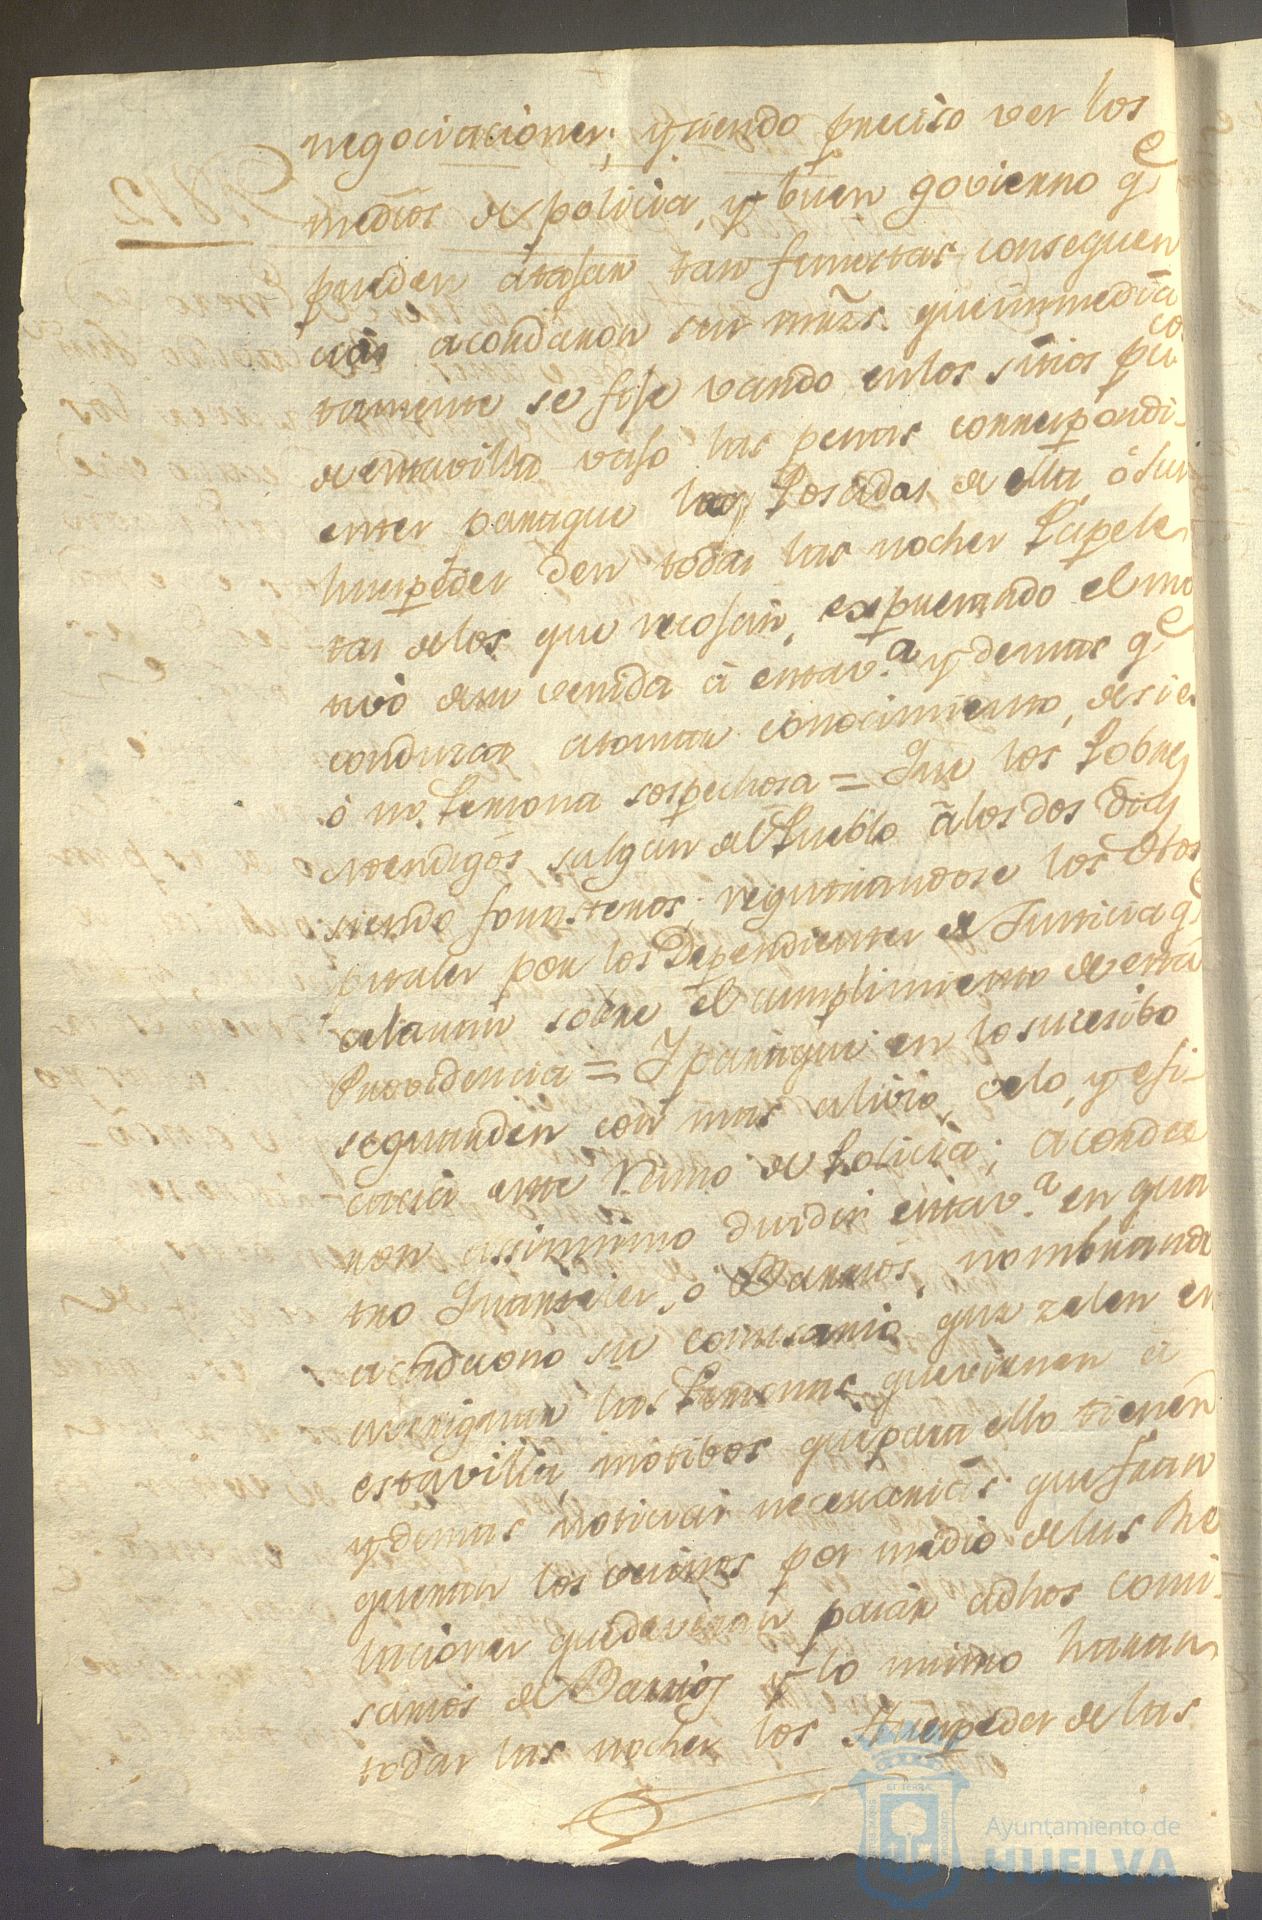 negociaciones; y siendo preciso ver los
medios de policia, y buen govierno qe
puedan atajar tan funestas consequen
cias acordaron sus mrzs. que inmedia
tamente se fije vando en los sitios puco
de esta villa vajo las penas correspondi
entes para que los Posadas de ella ó sus
huespedes den todas las noches Papele
tas de los que recojan, expresando el mo
tivo de su venida á esta v.a y demas qe
conduzcan a tomar conocimiento, de si es
ó no Persona sospechosa = Que los Pobres
mendigos salgan del Pueblo á los dos dias
siendo forasteros; registrandose los Hos
pitales por los Dependientes de Justicia qe
celaran sobre el cumplimiento de esta
Providencia = Y para que en lo sucesibo
se guarden con mas alivio, celo, y efi-
cacia este Ramo de Policia; acorda
ron assimismo dividir esta v.a en qua
tro Quarteles, ó Barrios, nombrando
a cada uno su comisario que zelen en
averiguar las Personas que vienen á
esta villa, motibos que para ello tienen
y demas noticias necesarias que fran
quearan los vecinos por medio de las Re
laciones que deveran pasar a dhos comi
sarios de Barrios y lo mismo haran
todas las noches los Huespedes de las
ET TERRAE
Ayuntamiento de
HUELVA